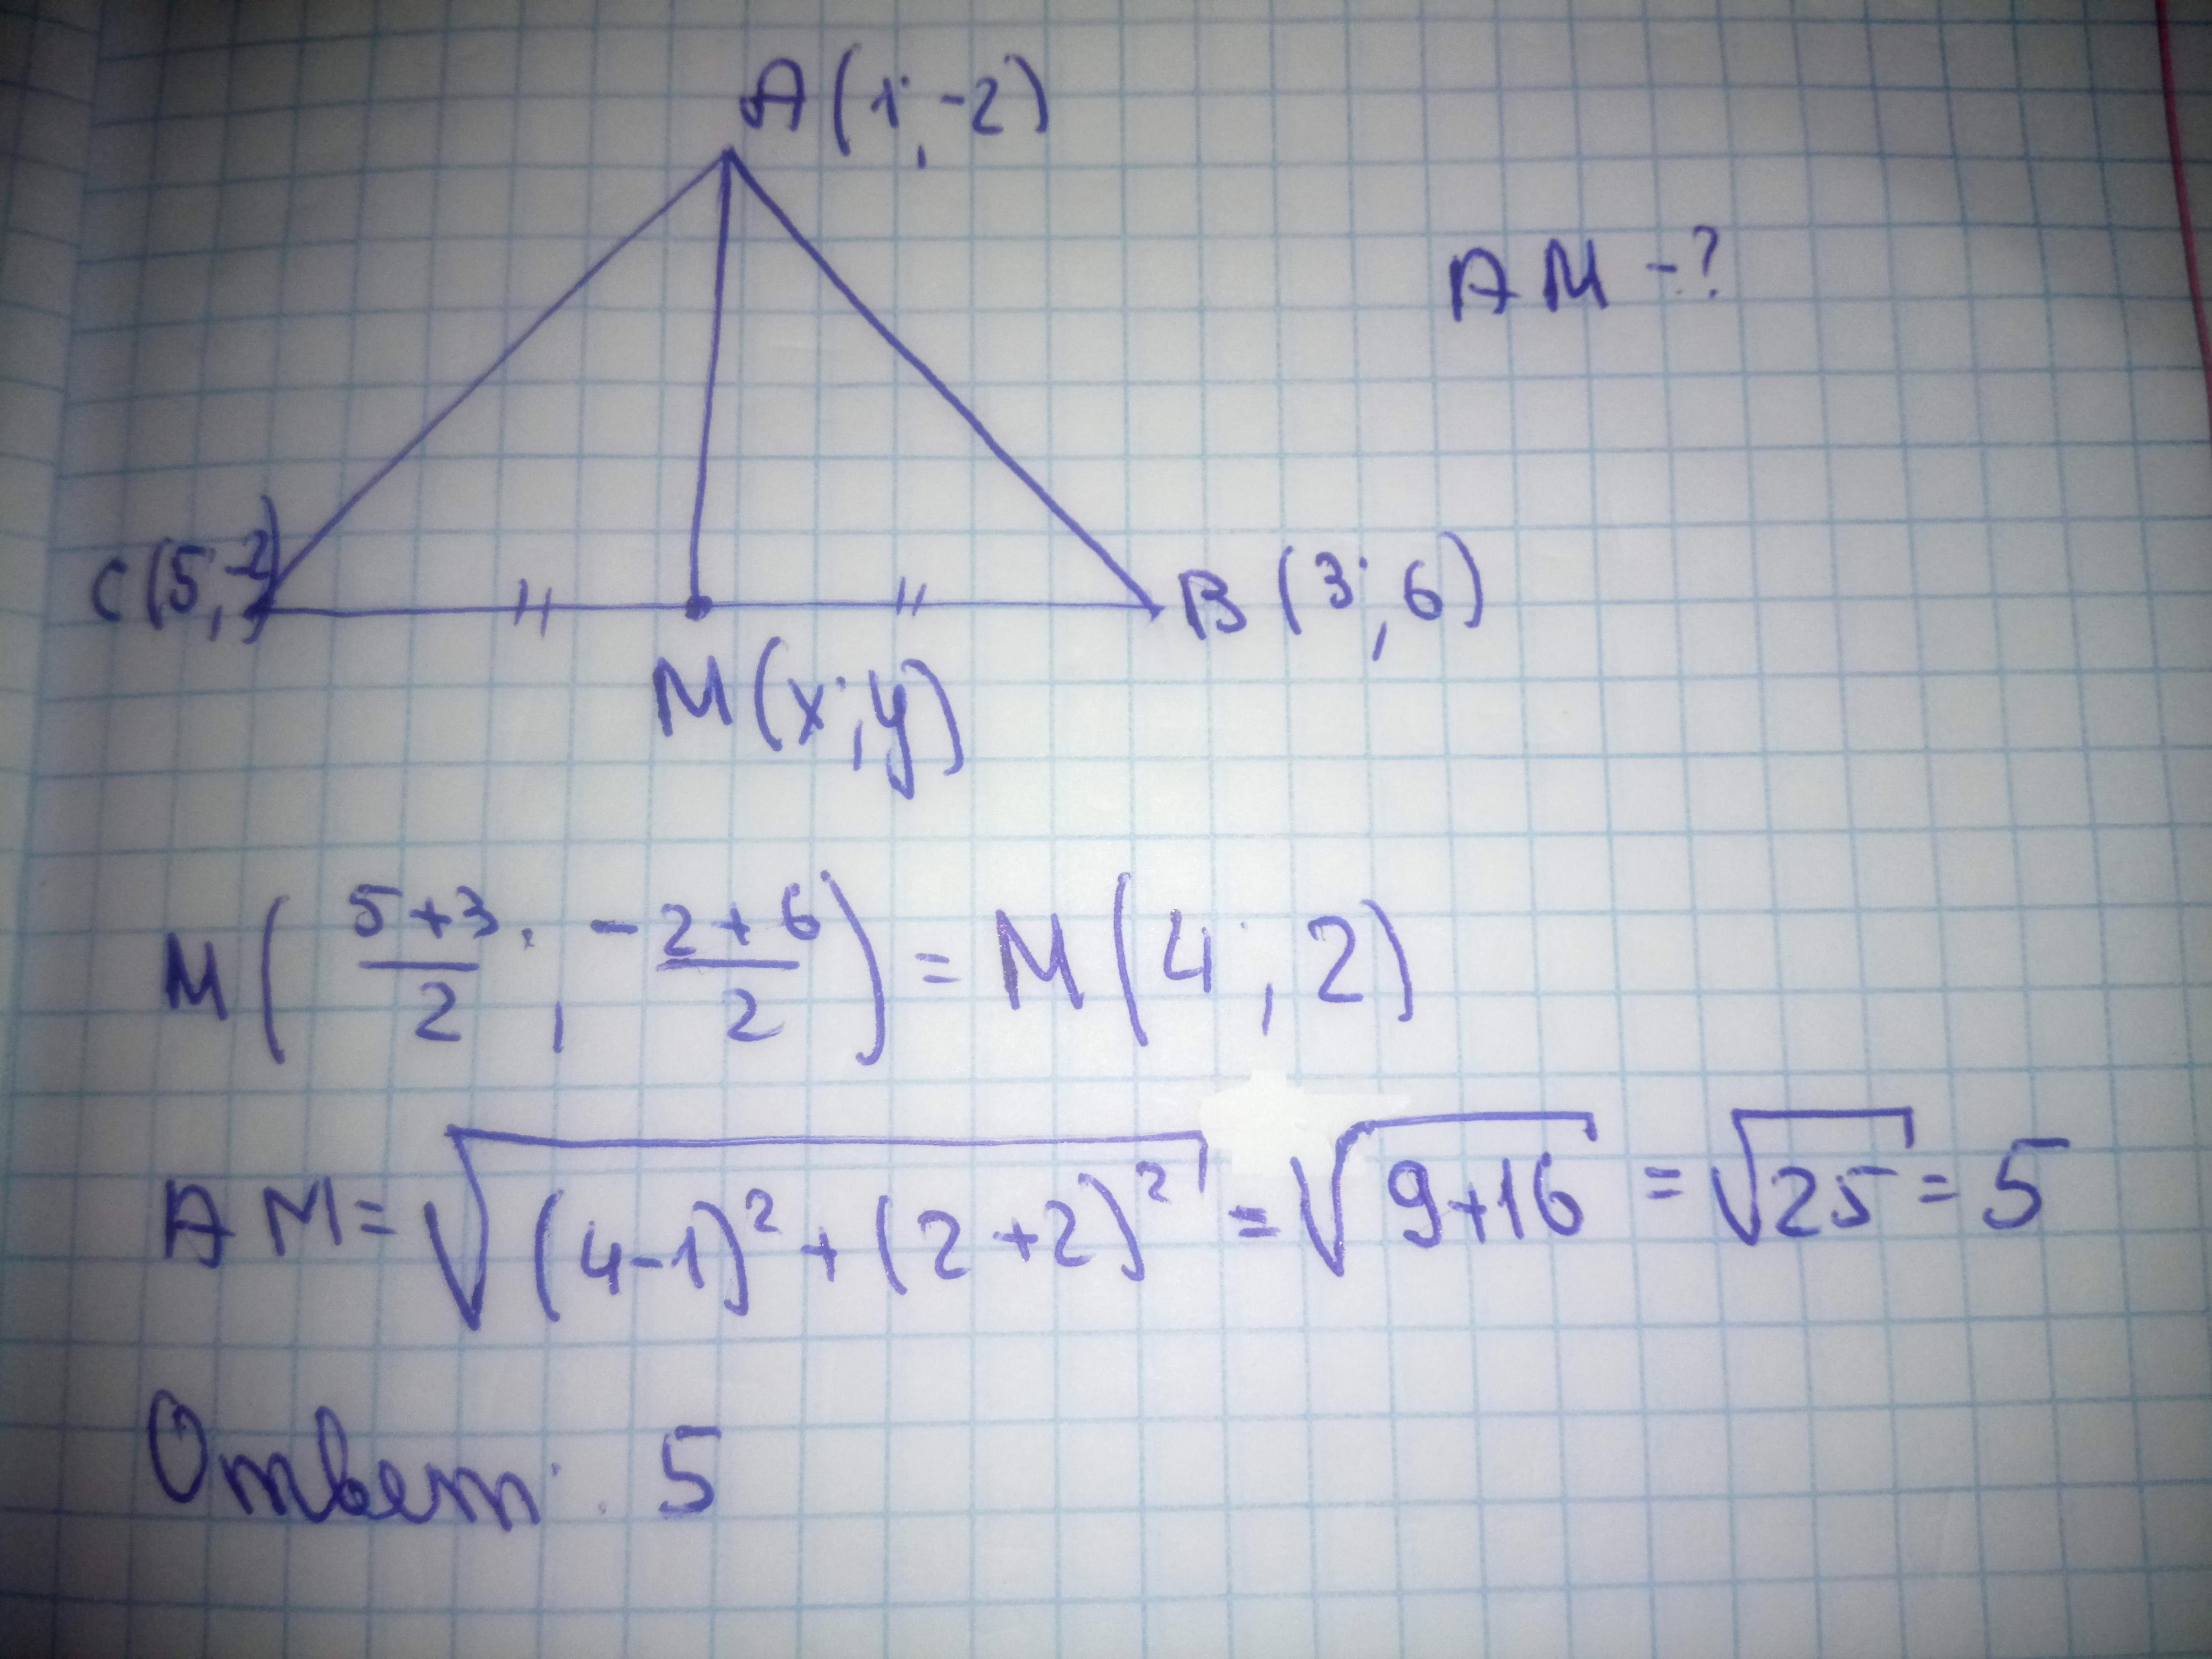 A(1;-2)
AM-?
C(5;-2)
B(3;6)
M(x;y)
M(5+3/2; -2+6/2) = M(4;2)
AM=√(4-1)²+(2+2)² = √9+16 = √25 = 5
Ответ: 5